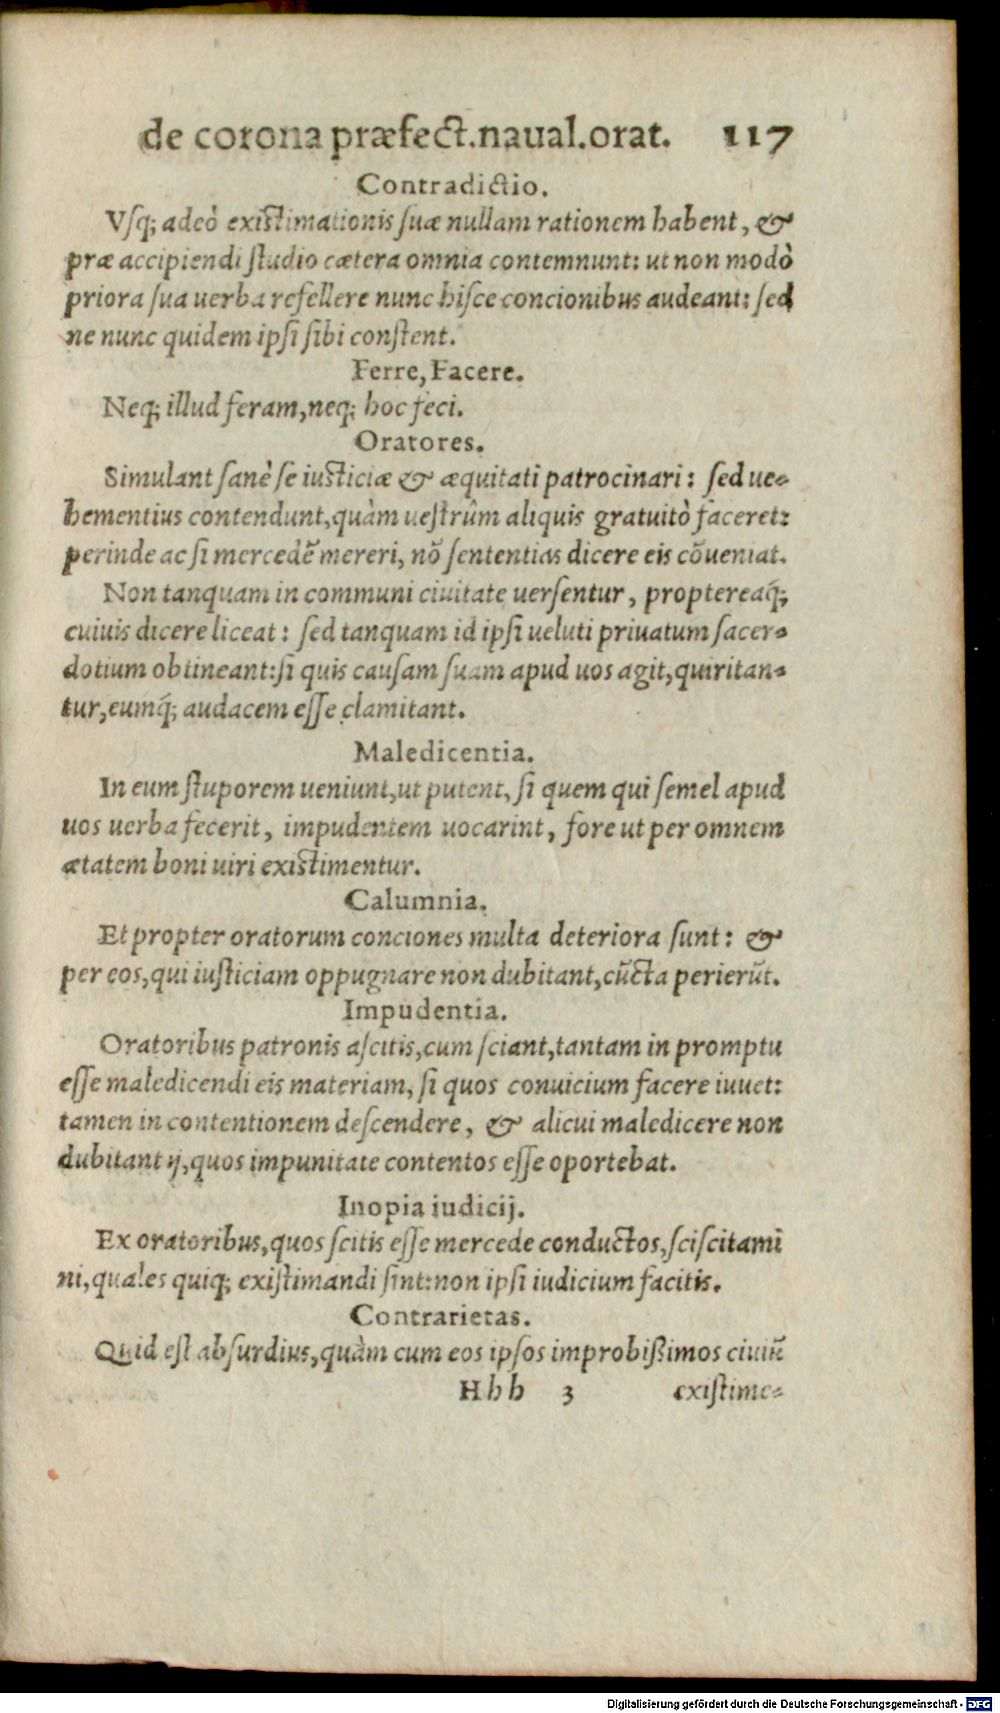 de corona præfect.naual.orat. 117
Contradictio.
Vſq; adeò exiſtimationis ſuæ nullam rationem habent, &
præ accipiendi ſtudio cætera omnia contemnunt: ut non modò
priora ſua uerba refellere nunc hiſce concionibus audeant: ſed
ne nunc quidem ipſi ſibi conſtent.
Ferre, Facere.
Neq; illud feram, neq; hoc feci.
Oratores.
Simulant ſanè ſe iuſticiæ & æquitati patrocinari: ſed ue-
hementius contendunt, quàm ueſtrûm aliquis gratuitò faceret:
perinde ac ſi mercedẽ mereri, nõ ſententias dicere eis cõueniat.
Non tanquam in communi ciuitate uerſentur, proptereaq́;
cuiuis dicere liceat: ſed tanquam id ipſi ueluti priuatum ſacer-
dotium obtineant: ſi quis cauſam ſuam apud uos agit, quiritan-
tur, eumq́; audacem eſſe clamitant.
Maledicentia.
In eum ſtuporem ueniunt, ut putent, ſi quem qui ſemel apud
uos uerba fecerit, impudentem uocarint, fore ut per omnem
ætatem boni uiri exiſtimentur.
Calumnia.
Et propter oratorum conciones multa deteriora ſunt: &
per eos, qui iuſticiam oppugnare non dubitant, cũcta perierũt.
Impudentia.
Oratoribus patronis aſcitis, cum ſciant, tantam in promptu
eſſe maledicendi eis materiam, ſi quos conuicium facere iuuet:
tamen in contentionem deſcendere, & alicui maledicere non
dubitant ij, quos impunitate contentos eſſe oportebat.
Inopia iudicij.
Ex oratoribus, quos ſcitis eſſe mercede conductos, ſciſcitami
ni, quales quiq; exiſtimandi ſint: non ipſi iudicium facitis.
Contrarietas.
Quid eſt abſurdius, quàm cum eos ipſos improbißimos ciuiũ
Hhh 3 exiſtime-
Digitalisierung gefördert durch die Deutsche Forschungsgemeinschaft - DFG